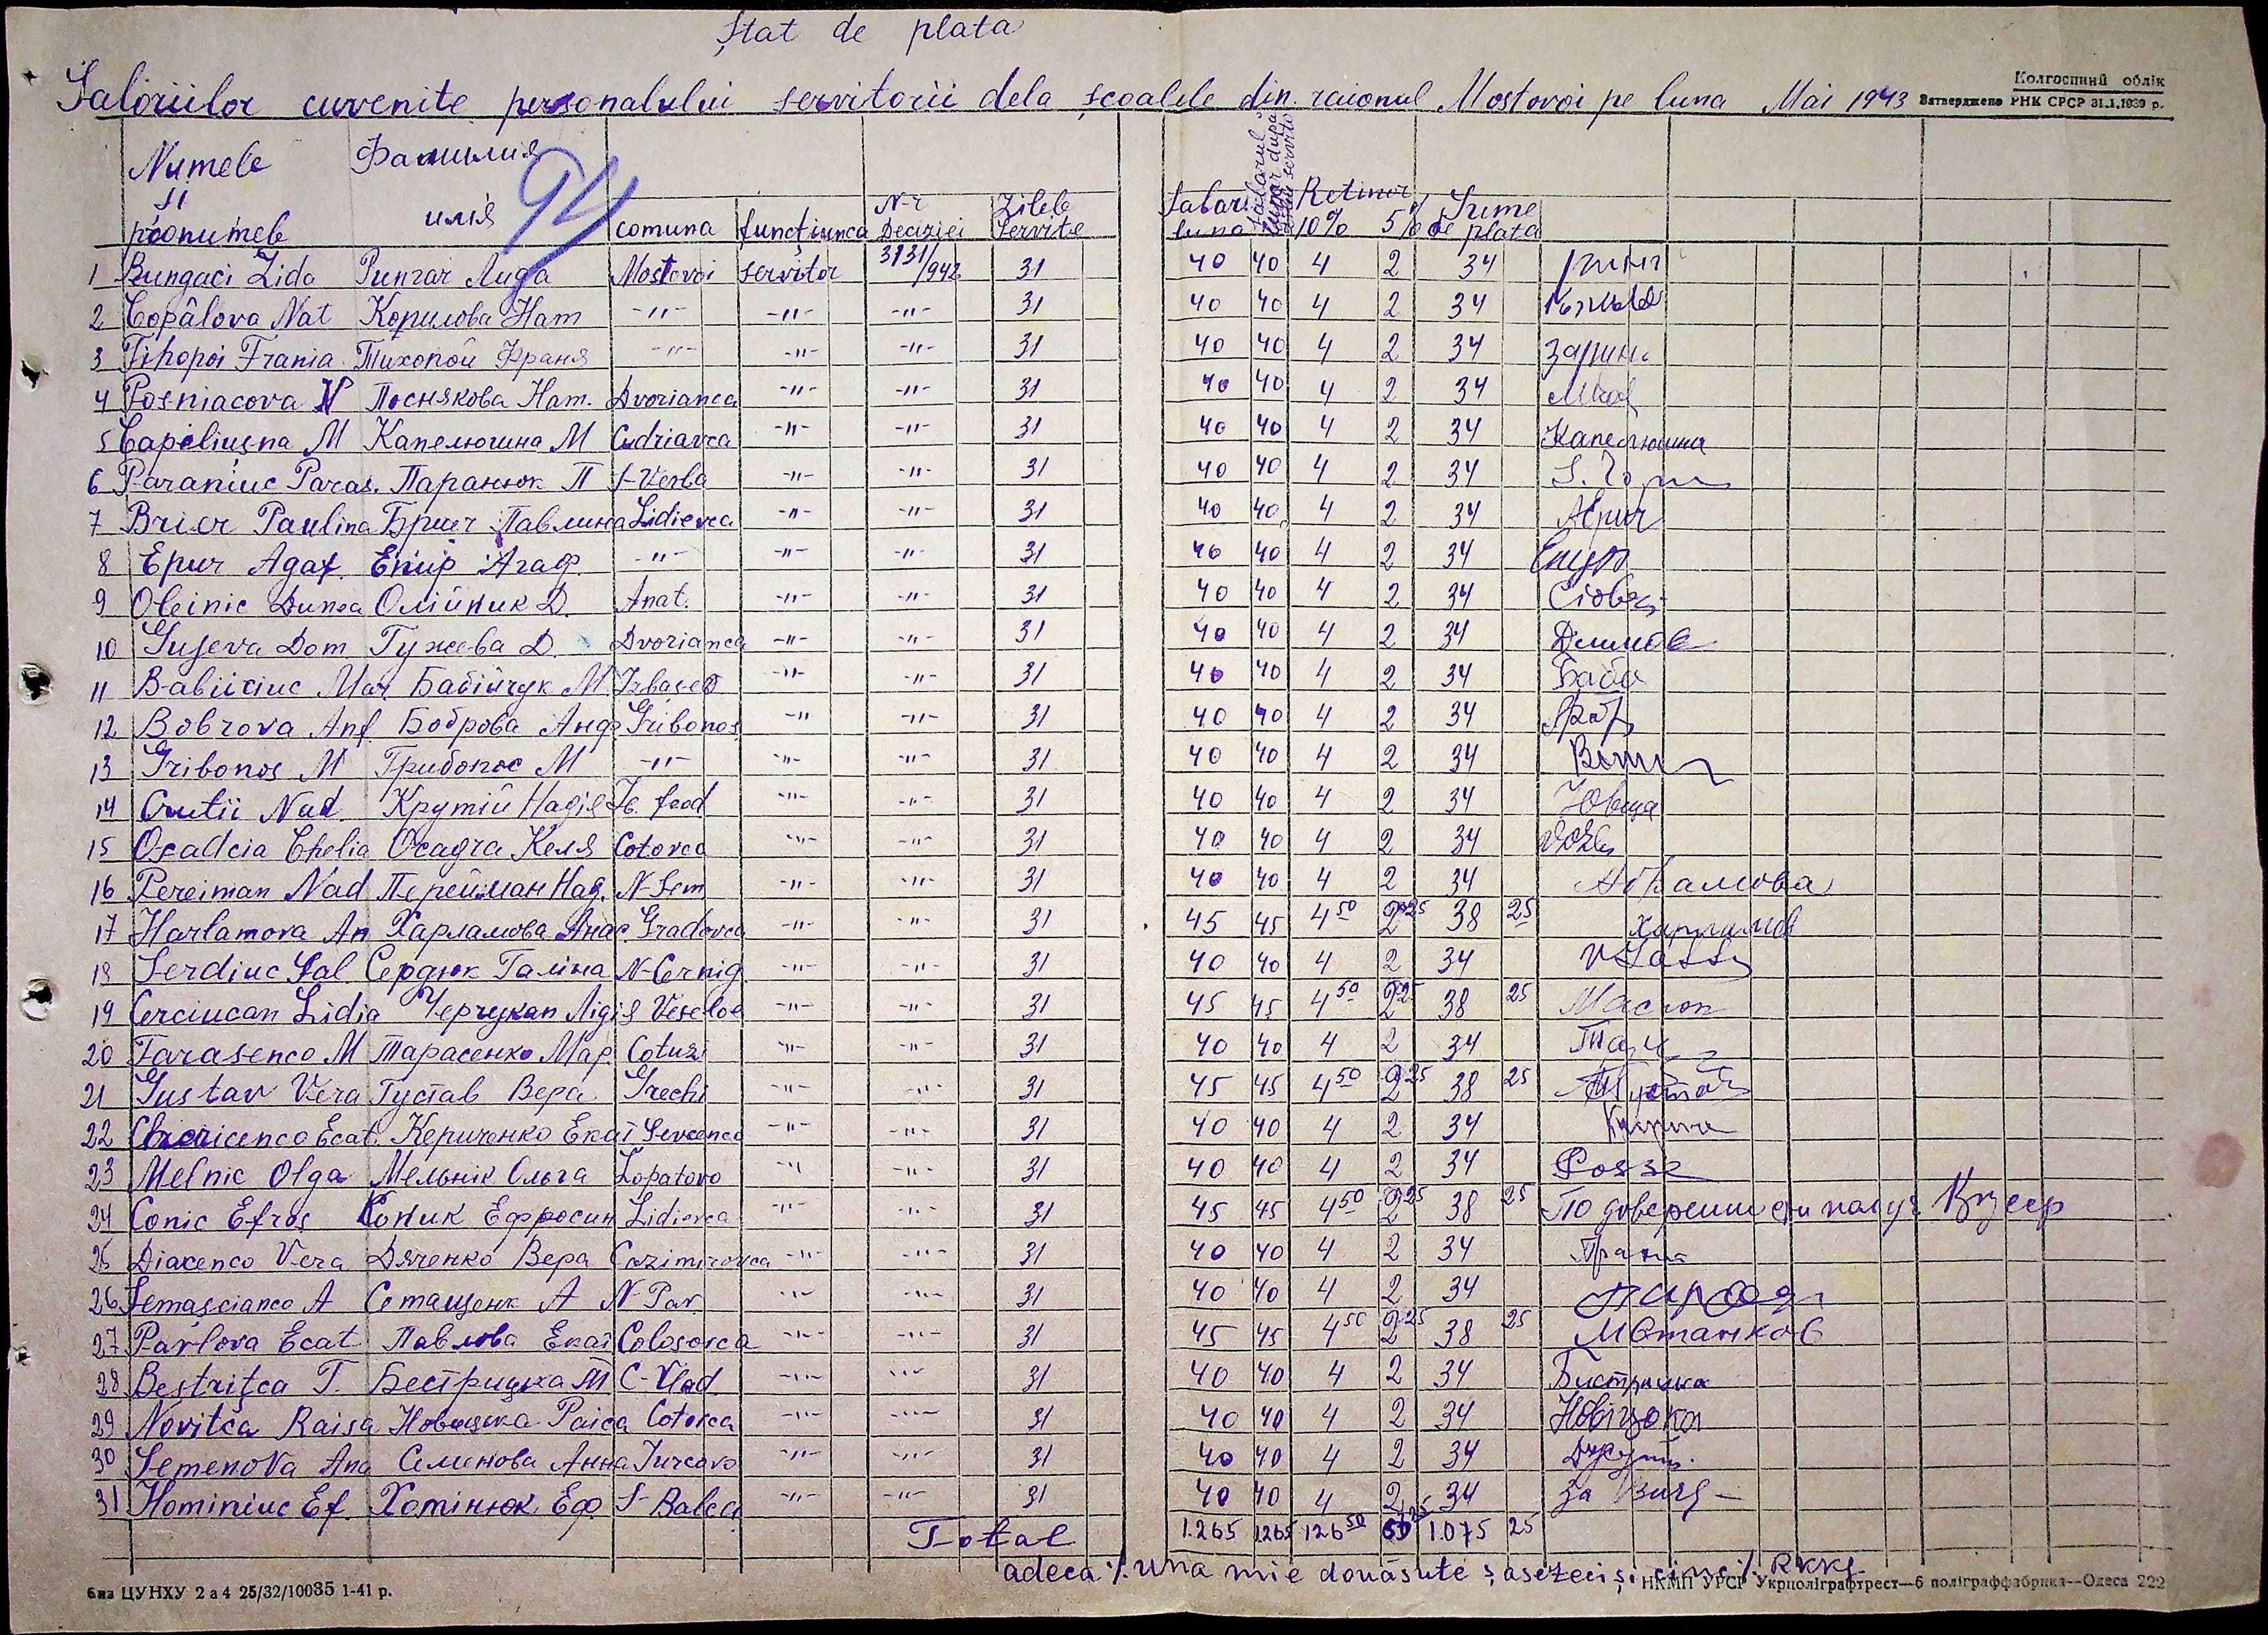 Ștat de plata
Salariilor cuvenite personalului servitorii dela școalele din raionul Mostovoi pe luna Mai 1943
Колгоспний облік
Затверджено РНК СРСР 31.1.1939 р.
Numele și pronumele Фамилия имя comuna funcțiunea N-r Deciziei Zilele servite Salari luna Salariul lunar după zilele servite Retineri 10% 5% Sume de plata
94
1 Bungaci Lida Рипгаг Лида Mostovoi servitor 3131/942 31 40 40 4 2 34
2 Copâlova Nat Копилова Нат -"- -"- -"- 31 40 40 4 2 34
3 Tihopoi Frania Тихопой Франя -"- -"- -"- 31 40 40 4 2 34
4 Posniacova N Поснякова Нат. Dvorianca -"- -"- 31 40 40 4 2 34
5 Capeliușna M Капелюшна М Cudriavca -"- -"- 31 40 40 4 2 34 Капелюшна
6 Paraniuc Paras. Паранюк П S-Verba -"- -"- 31 40 40 4 2 34
7 Bricr Paulina Брич Павлина Lidievca -"- -"- 31 40 40 4 2 34
8 Epur Agaf. Епур Агаф. -"- -"- -"- 31 40 40 4 2 34 Епур
9 Oleinic Dunea Олійник Д. Anat. -"- -"- 31 40 40 4 2 34
10 Gujeva Dom Гужева Д. Dvorianca -"- -"- 31 40 40 4 2 34
11 Babiiciuc Mar Бабійчук М Izbased -"- -"- 31 40 40 4 2 34
12 Bobrova Anf. Боброва Анф Gribonos -" -"- 31 40 40 4 2 34
13 Gribonos M Грибонос М -"- -"- -"- 31 40 40 4 2 34
14 Crutii Nad. Крутій Надія feod -"- -"- 31 40 40 4 2 34
15 Osadcia Chelia Осадча Келя Cotovca -"- -"- 31 40 40 4 2 34
16 Pereiman Nad Перейман Над. N-Sem -"- -"- 31 40 40 4 2 34 Абрамова
17 Harlamova An Харламова Анас Gradovca -"- -"- 31 45 45 4 50 2 25 38 25
18 Serdiuc Gal Сердюк Галіна N-Cernig -"- -"- 31 40 40 4 2 34
19 Cerciucan Lidia Черчукан Лідія Veseloe -"- -"- 31 45 45 4 50 2 25 38 25
20 Tarasenco M Тарасенко Мар. Cotuzi -"- -"- 31 40 40 4 2 34
21 Gustav Vera Густав Вера Grechi -"- -"- 31 45 45 4 50 2 25 38 25
22 Chericenco Ecat. Кериченко Екат Sevcenco -"- -"- 31 40 40 4 2 34
23 Melnic Olga Мельнік Ольга Lopatovo -"- -"- 31 40 40 4 2 34
24 Conic Efros Коник Ефросин Lidievca -"- -"- 31 45 45 4 50 2 25 38 25 По доверенности получ
25 Diacenco Vera Дяченко Вера Cazimirovca -"- -"- 31 40 40 4 2 34
26 Semașcianco A Семащенк А N-Pav -"- -"- 31 40 40 4 2 34
27 Pavlova Ecat Павлова Екат Colosovca -"- -"- 31 45 45 4 50 2 25 38 25
28 Bestrițca T. Бестрицка Т C-Vlad. -"- -"- 31 40 40 4 2 34 Бистрицка
29 Novitca Raisa Новицка Раиса Cotovca -"- -"- 31 40 40 4 2 34 Новіцька
30 Semenova Ana Семинова Анна Turcovo -"- -"- 31 40 40 4 2 34
31 Hominiuc Ef. Хомінюк Еф. S-Balca -"- -"- 31 40 40 4 2 34
Total 1.265 1265 126 50 25 1.075 25
adeca ./. una mie douăsute șasezeci și cinci ./. RKKS
биз ЦУНХУ 2 а 4 25/32/10035 1-41 р.
НКМП УРСР Укрполіграфтрест—6 поліграффабрика—Одеса 222